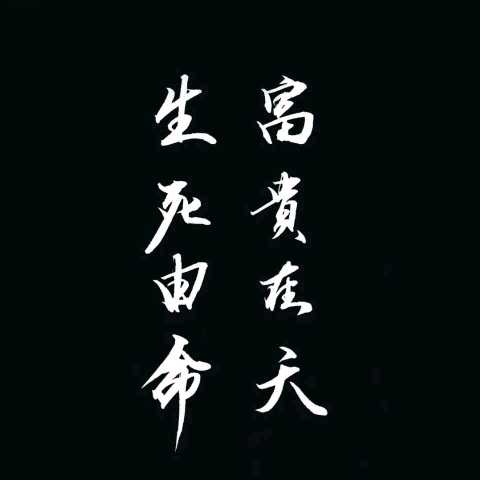 富貴在天
生死由命